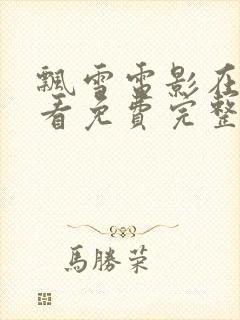 飄雪電影在
看免費完整
馬勝榮